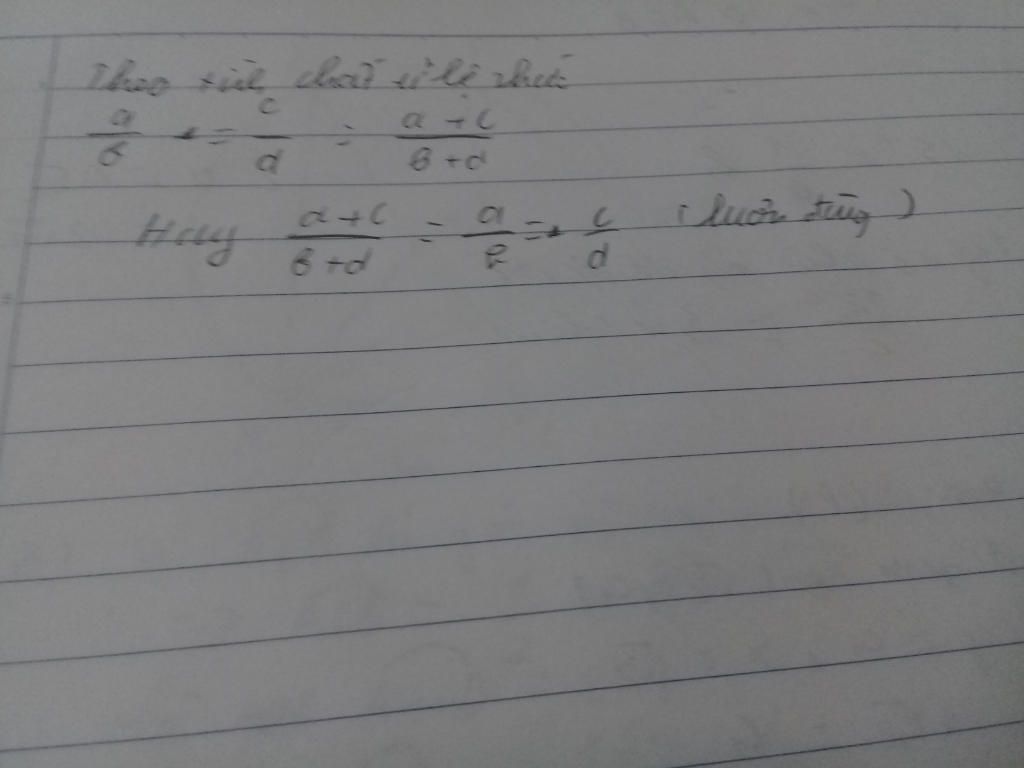 Theo tính chất tỉ lệ thức
a/b = c/d = a+c/b+d
Hay a+c/b+d = a/b = c/d (luôn đúng)